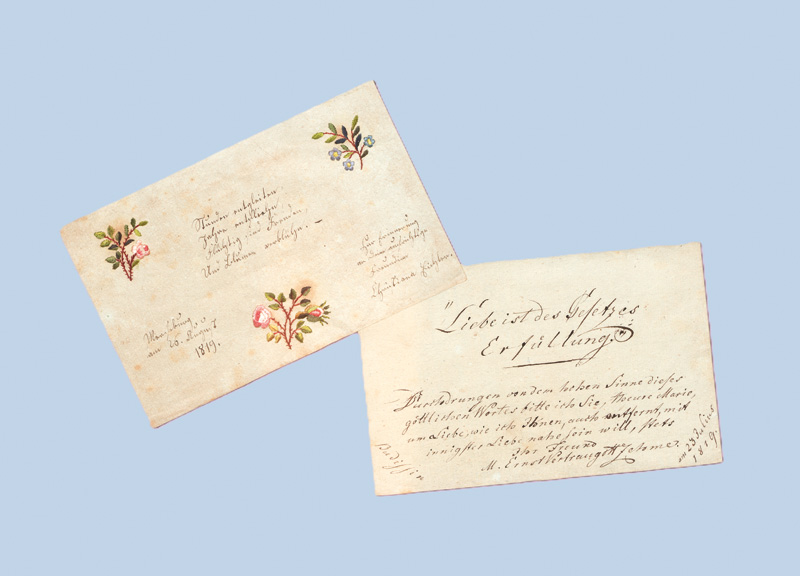 Stunden entgleiten,
Jahre entfliehn,
Flüchtig sind Freuden,
Und Blumen verblühn. —
Zur Erinnerung
an Ihre aufrichtige
Freundin
Christiana
am 20. August
1819.
"Liebe ist des Gesetzes
Erfüllung."
Durchdrungen von dem hohen Sinne dieses
göttlichen Wortes bitte ich Sie, theure Marie,
um Liebe, wie ich Ihnen, auch entfernt, mit
innigster Liebe nahe sein will, stets
Ihr Freund
M. Ernst Vertraugott
Budissin
am 23 Julius
1819.